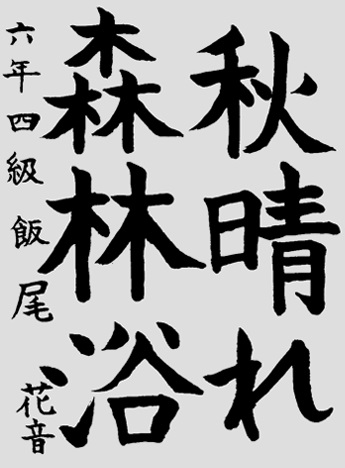 秋晴れ
森林浴
六年四級飯尾花音